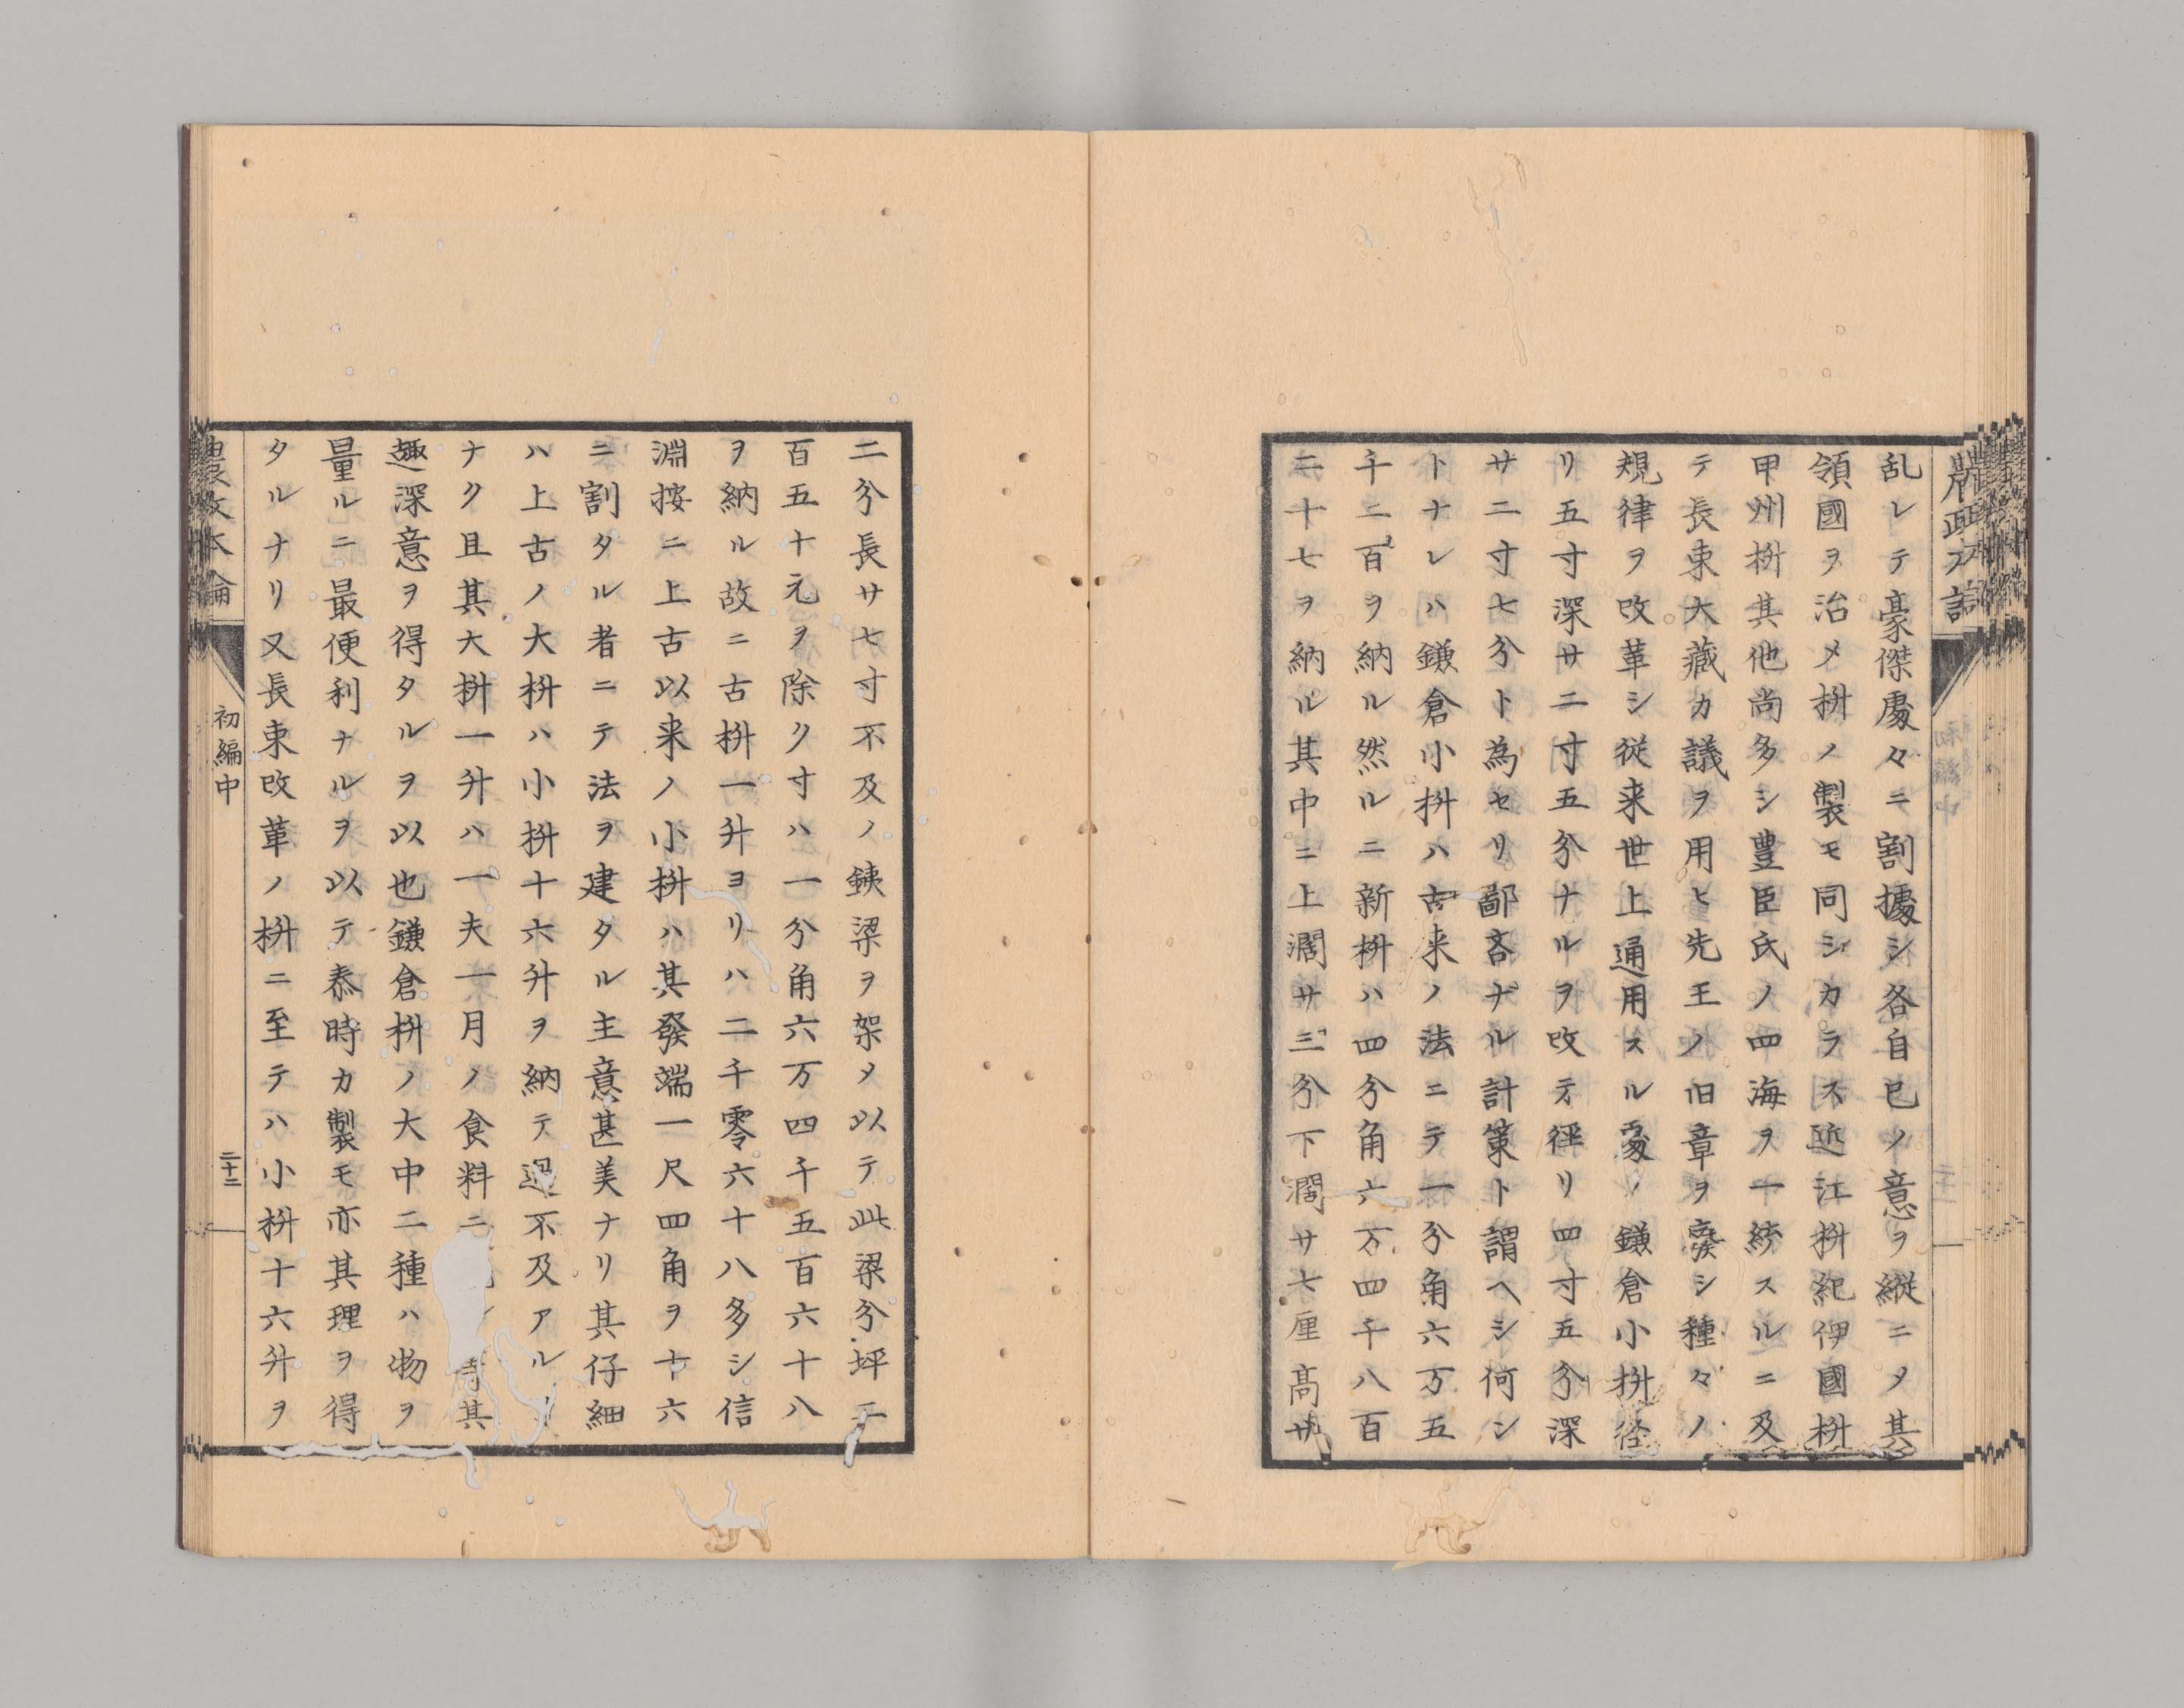 乱レテ豪傑處々ニ割據シ各自己ノ意ヲ縦ニメ其
領國ヲ治メ枡ノ製モ同シカラス近江枡紀伊國枡
甲州枡其他尚多シ豊臣氏ノ四海ヲ一統スルニ及
テ長束大藏カ議ヲ用ヒ先王ノ旧章ヲ廢シ種々ノ
規律ヲ改革シ従来世上通用スル處ノ鎌倉小枡径
リ五寸深サ二寸五分ナルヲ改テ徑リ四寸五分深
サ二寸七分ト為セリ鄙吝ナル計策ト謂ヘシ何シ
トナレハ鎌倉小枡ハ古来ノ法ニテ一分角六万五
千二百ヲ納ル然ルニ新枡ハ四分角六万四千八百
二十七ヲ納ル其中ニ上濶サ三分下濶サ七厘髙サ
二分長サ七寸不及ノ銕梁ヲ架メ以テ此梁分坪二
百五十元ヲ除ク寸ハ一分角六万四千五百六十八
ヲ納ル故ニ古枡一升ヨリハ二千零六十八多シ信
淵按ニ上古以来ノ小枡ハ其發端一尺四角ヲ十六
ニ割タル者ニテ法ヲ建タル主意甚美ナリ其仔細
ハ上古ノ大枡ハ小枡十六升ヲ納テ過不及アル
ナク且其大枡一升ハ一夫一月ノ食料ニ其
趣深意ヲ得タルヲ以也鎌倉枡ノ大中二種ハ物ヲ
量ルニ最便利ナルヲ以テ泰時カ製モ亦其理ヲ得
タルナリ又長束改革ノ枡ニ至テハ小枡十六升ヲ
農政本論
初編中
二十二